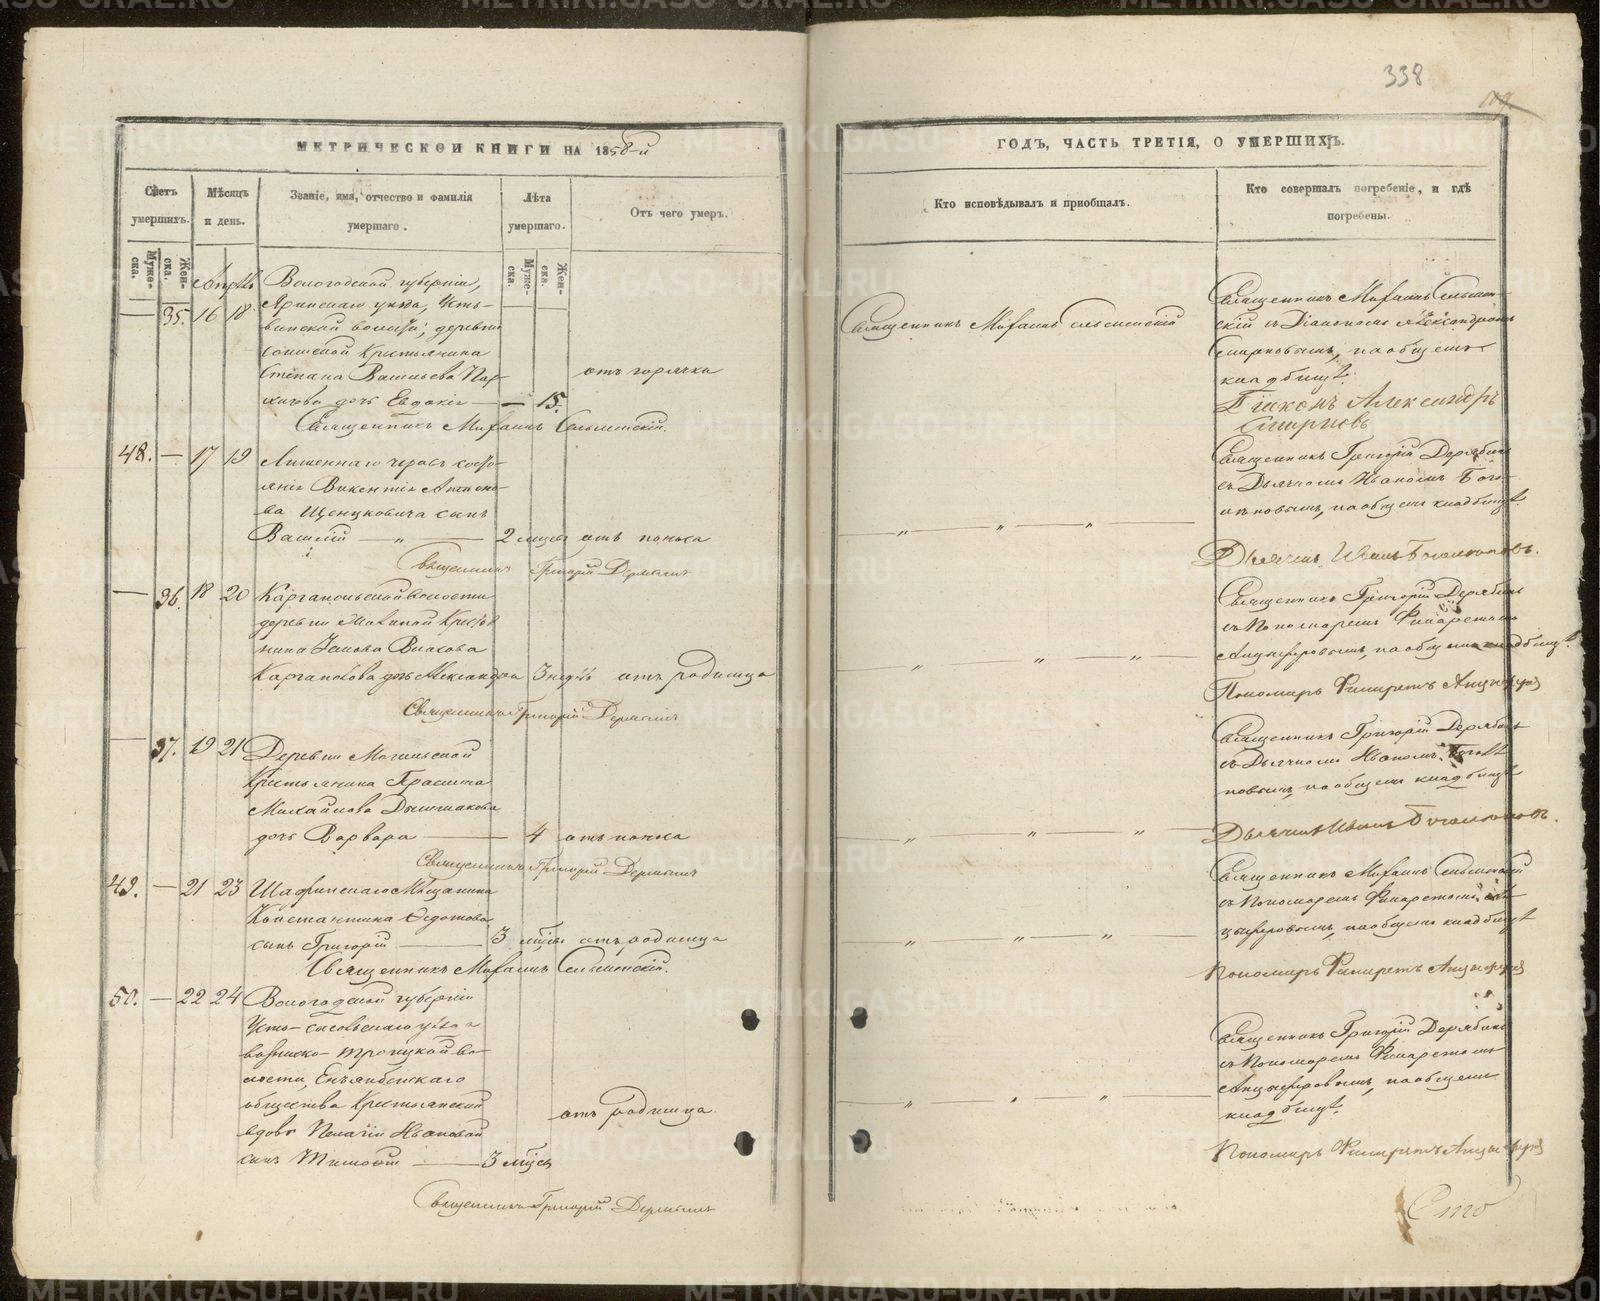 338
МЕТРИЧЕСКОЙ КНИГИ НА 1858-й
ГОДЪ, ЧАСТЬ ТРЕТІЯ, О УМЕРШИХЪ.
Счетъ умершихъ.
Муже-ска.
Жен-ска.
Мѣсяцъ и день.
Званіе, имя, отчество и фамилія умершаго.
Лѣта умершаго.
Муже-ска.
Жен-ска.
Отъ чего умеръ.
Кто исповѣдывалъ и пріобщалъ.
Кто совершалъ погребеніе, и гдѣ погребены.
Апрѣль
Вологодской губерніи,
— 35. 16 18 Яринскаго уѣзда, Усть-
волости, деревни
Крестьянина
Степана Васильева
дочь Евдокія — — 15.
отъ горячки
Священникъ Михаилъ Сельменскій.
Священникъ Михаилъ Сельменскій
Священникъ Михаилъ Сельмен-
скій съ Діакономъ Александромъ
Смирновымъ, на общемъ
кладбищѣ.
Діаконъ Александръ
Смирновъ
48. — 17 19 Лишеннаго правъ состо-
янія Викентія Антоно-
ва сынъ
Василій — „ — 2 мѣсяц отъ поноса
Священникъ Григорій Дерябинъ
Священникъ Григорій Дерябинъ
съ Дьячкомъ Иваномъ Бого-
молповымъ, на общемъ кладбищѣ.
Дьячекъ Иванъ
— 36. 18 20 Каргапольской Волости
деревни Крестья
нина Власова
Каргаполова дочь Александра 3 недѣли отъ родимца
Священникъ Григорій Дерябинъ
Священникъ Григорій Дерябинъ
съ Пономаремъ Филаретомъ
Анцыферовымъ, на общемъ кладбищѣ.
Пономарь Филаретъ Анцыферов
— 37. 19 21 Деревни Могильской
Крестьянина Герасима
Михайлова
дочь Варвара — 4 отъ поноса
Священникъ Григорій Дерябинъ
Священникъ Григорій Дерябинъ
съ Дьячкомъ Иваномъ
на общемъ кладбищѣ
Дьячекъ Иванъ
49. — 21 23 Шадринскаго Мѣщанина
Константина Ѳедотова
сынъ Григорій — 3 мѣсяц отъ родимца
Священникъ Михаилъ Сельменскій.
Священникъ Михаилъ Сельменскій
съ Пономаремъ Филаретомъ Ан-
цыферовымъ, на общемъ кладбищѣ
Пономарь Филаретъ Анцыферов
50. — 22 24 Вологодской губерніи
Усть-Сысольскаго уѣзда
Вознесено-Троицкой во-
лости,
общества Крестьянской
вдовы Пелагіи Ивановой
сынъ Тимофей — 3 мѣсяц
отъ родимца.
Священникъ Григорій Дерябинъ
Священникъ Григорій Дерябинъ
съ Пономаремъ Филаретомъ
Анцыферовымъ, на общемъ
кладбищѣ.
Пономарь Филаретъ Анцыферов
Сто
METRIKI.GASO-URAL.RU